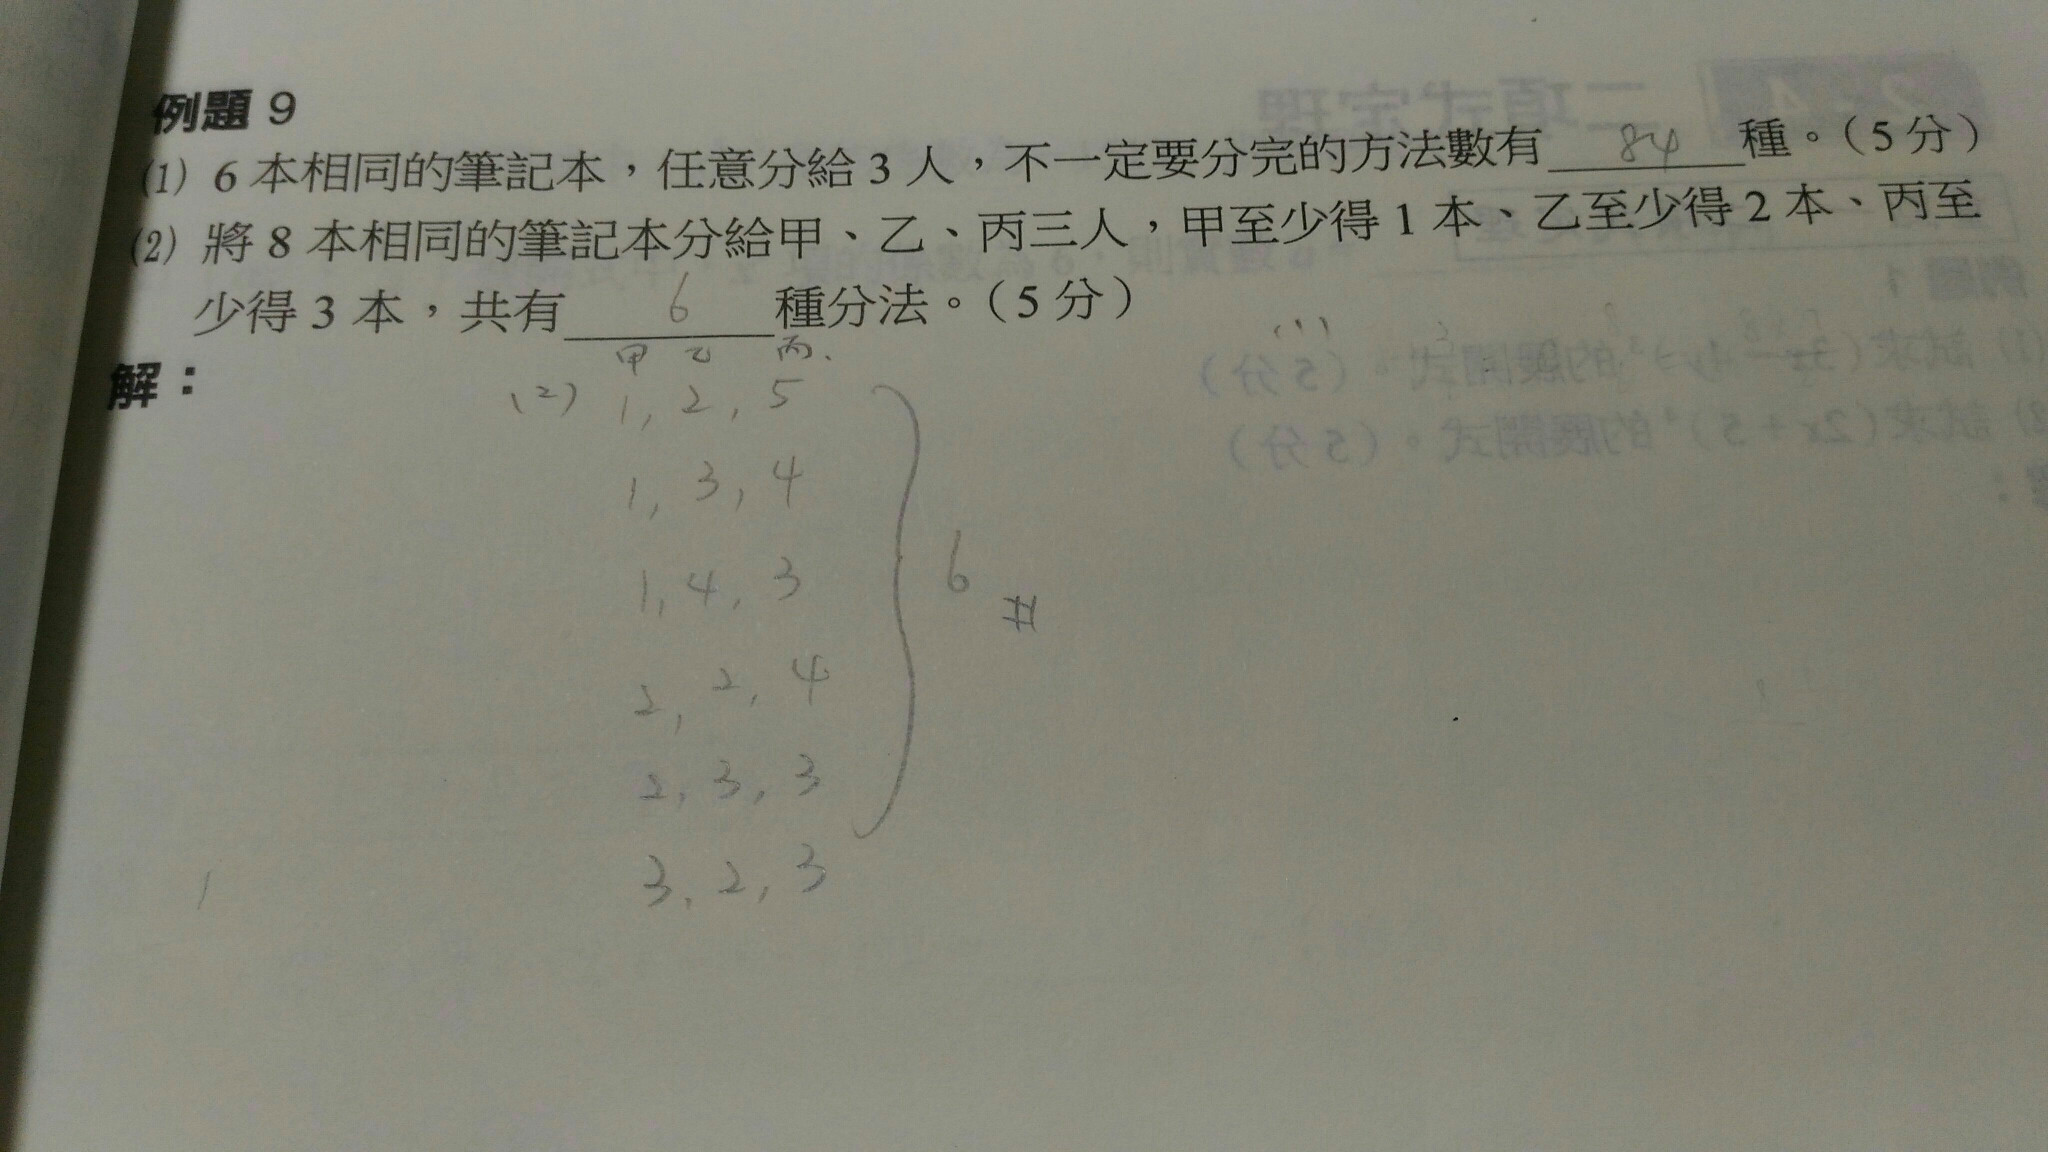 例題 9
(1) 6 本相同的筆記本，任意分給 3 人，不一定要分完的方法數有 84 種。（5 分）
(2) 將 8 本相同的筆記本分給甲、乙、丙三人，甲至少得 1 本、乙至少得 2 本、丙至
少得 3 本，共有 6 種分法。（5 分）
解：
甲 乙 丙.
(2) 1, 2, 5
1, 3, 4
1, 4, 3
2, 2, 4
2, 3, 3
3, 2, 3
6 #